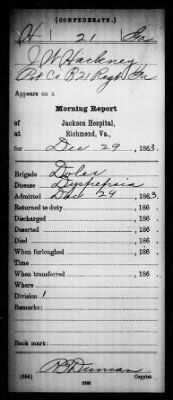 (CONFEDERATE.)
H 21 Ga
J. W. Hackney
Pvt Co B 21 Regt Ga
Appears on a
Morning Report
of Jackson Hospital,
Richmond, Va.,
for Dec 29, 1863.
Brigade Doles
Disease Dyspepsia
Admitted Dec 29, 1863.
Returned to duty , 186 .
Discharged , 186 .
Deserted , 186 .
Died , 186 .
When furloughed , 186 .
Time
When transferred , 186 .
Where
Division 1
Remarks:
Book mark:
Duncan
Copyist.